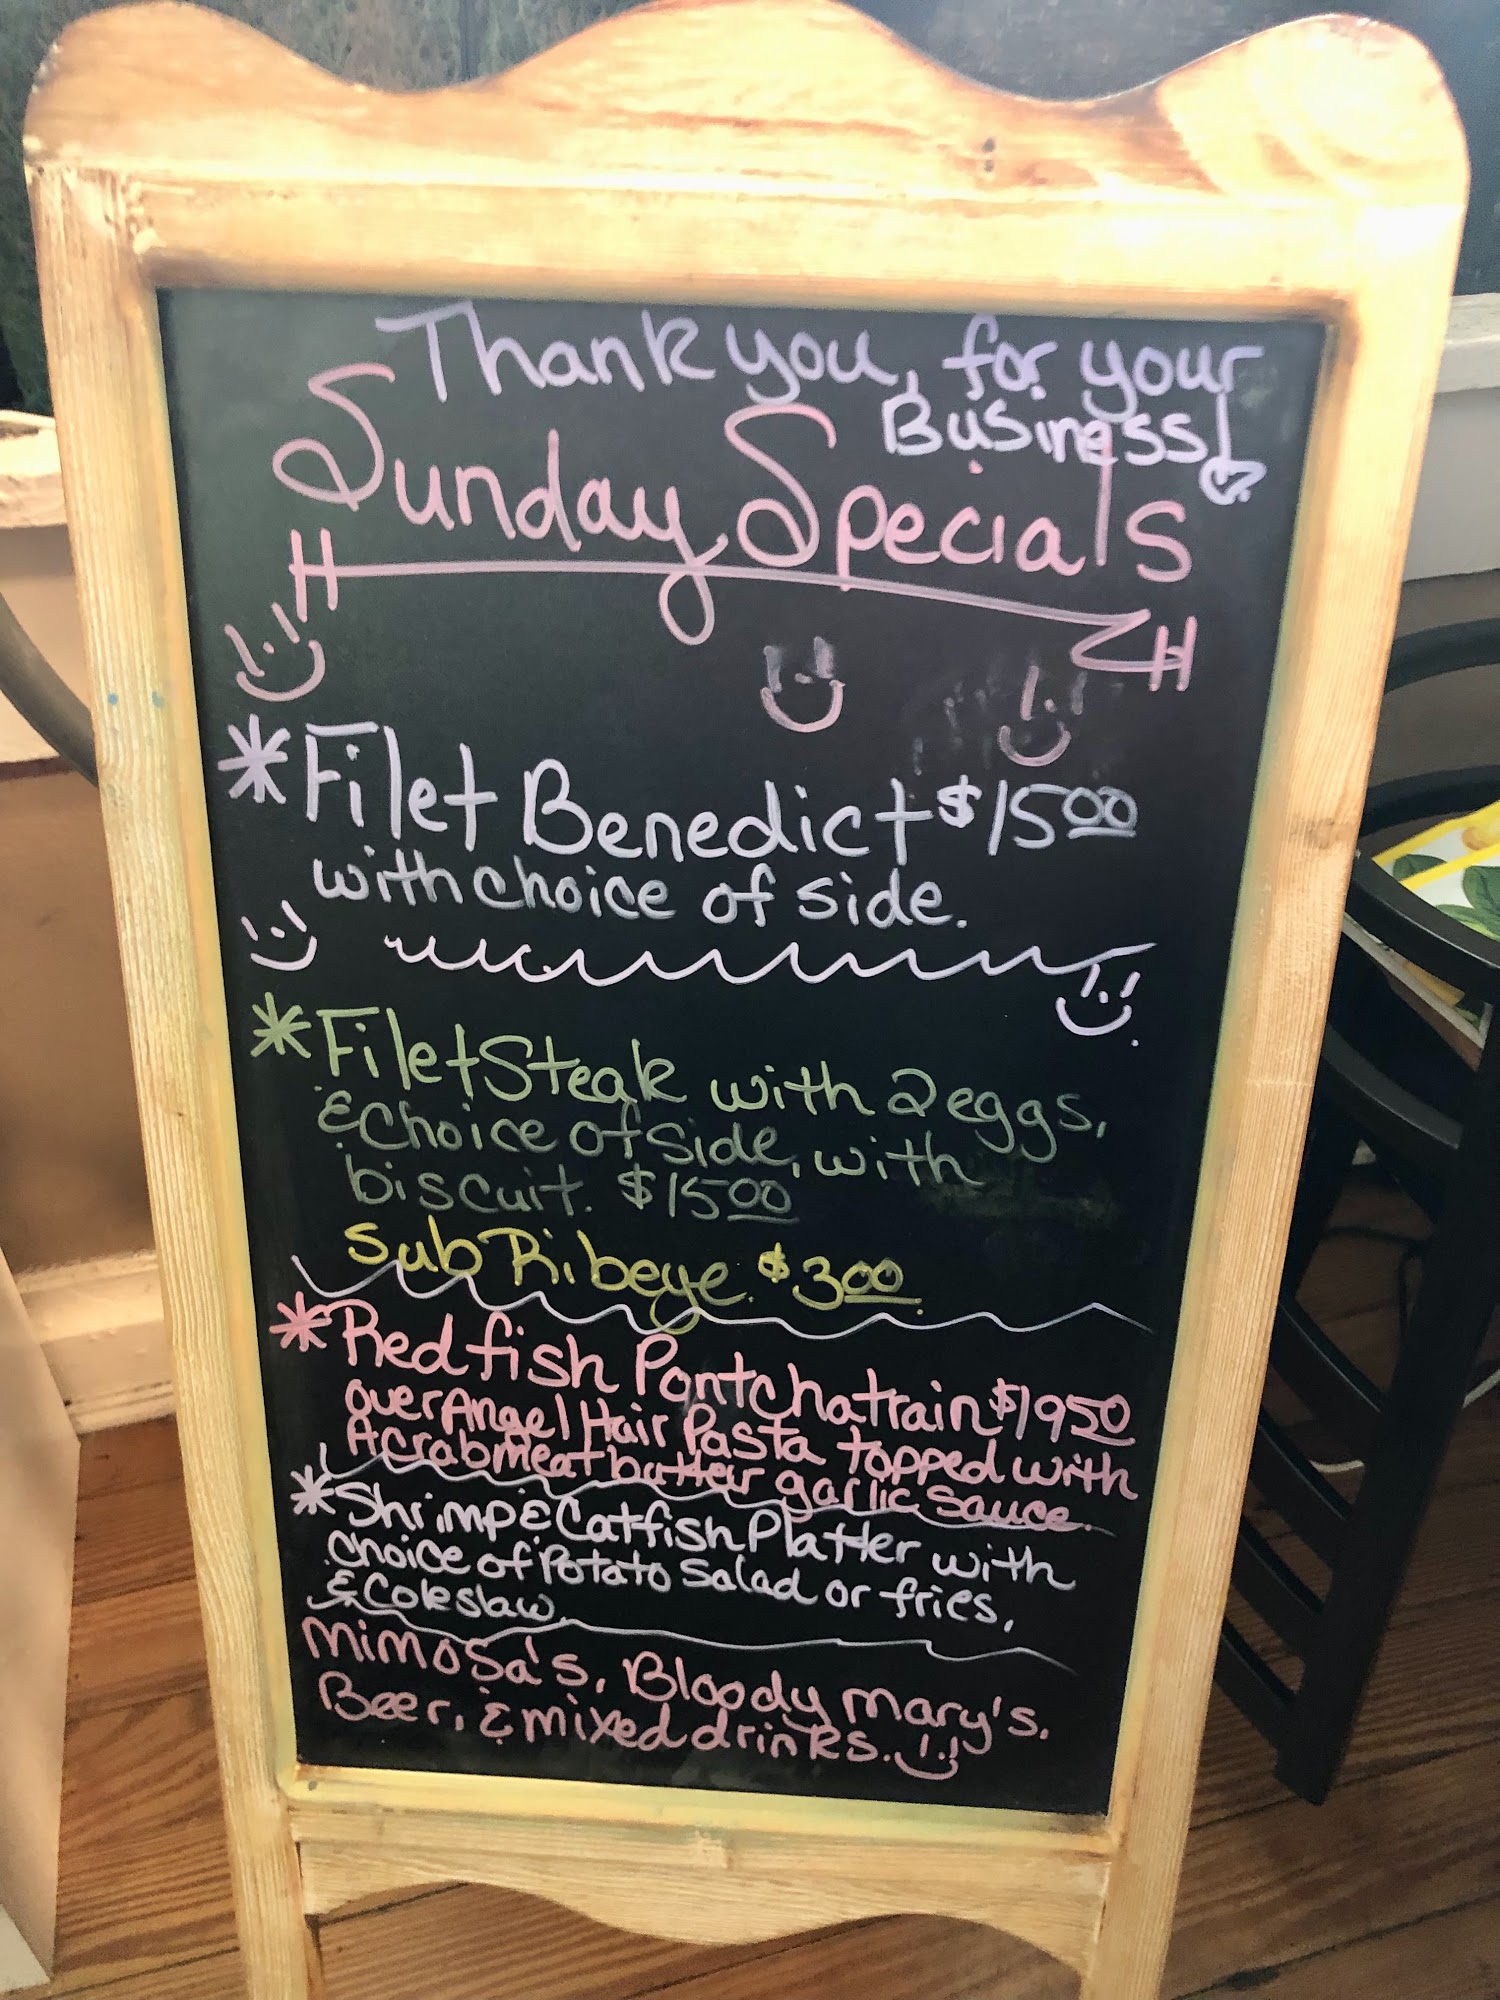 Thank you, for your
Business!
Sunday Specials
*Filet Benedict $15.00
with choice of side.
*Filet Steak with 2 eggs,
& Choice of side, with
biscuit. $15.00
Sub Ribeye. $3.00
*Redfish Pontchatrain $19.50
over Angel Hair Pasta topped with
A crabmeat butter garlic sauce.
*Shrimp & Catfish Platter with
Choice of Potato Salad or fries,
& Coleslaw.
Mimosa's, Bloody Mary's,
Beer, & mixed drinks.